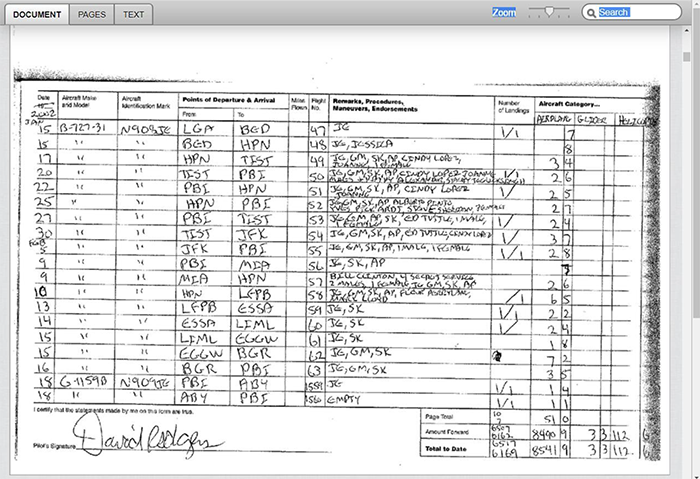 DOCUMENT PAGES TEXT Zoom Search
Date Aircraft Make and Model Aircraft Identification Mark Points of Departure & Arrival Miles Flown Flight No. Remarks, Procedures, Maneuvers, Endorsements Number of Landings Aircraft Category...
2002 From To AEROPLANE GLIDER
JAN
15 B-727-31 N908JE LGA BED 47 JE 1/1 7
15 " " BED HPN 48 JE, JESSICA 8
17 " " HPN TIST 49 JE, GM, SK, AP, CINDY LOPEZ, 3 4
20 " " TIST PBI 50 JE, GM, SK, AP, CINDY LOPEZ 1/ 2 6
22 " " PBI HPN 51 JE, GM, SK, AP, CINDY LOPEZ 2 5
25 " " HPN PBI 52 JE, GM, SK, AP, ALBERTO PINTO 2 7
27 " " PBI TIST 53 JE, GM, AP, SK, ED TUTTLE, 1 MALE, 1 FEMALE 1/ 2 4
30 " " TIST JFK 54 JE, GM, SK, AP, ED TUTTLE, CINDY LOPEZ 1/ 3 7
FEB " " JFK PBI 55 JE, GM, SK, AP, 1 MALE, 1 FEMALE 1/1 2 8
9 " " PBI MIA 56 JE, SK, AP
9 " " MIA HPN 57 BILL CLINTON, 4 SECRET SERVICE 2 MALES, 1 FEMALE, JE, GM, SK, AP 2 6
10 " " HPN LFPB 58 JE, GM, SK, AP, /1 6 5
13 " " LFPB ESSA 59 JE, SK 1/1 2 2
14 " " ESSA LIML 60 JE, SK 1/ 2 4
15 " " LIML EGGW 61 JE, SK 1 8
15 " " EGGW BGR 62 JE, GM, SK 7 2
16 " " BGR PBI 63 JE, GM, SK 3 5
18 G-1159B N909JE PBI ABY 1559 JE 1/1 1 4
18 " " ABY PBI EMPTY 1/1 1 1
I certify that the statements made by me on this form are true.
Page Total 10 7 51 0
Amount Forward 6507 6162 8490 9 3 3 112 6
Total to Date 6517 6169 8541 9 3 3 112 6
Pilot's Signature David Rodgers